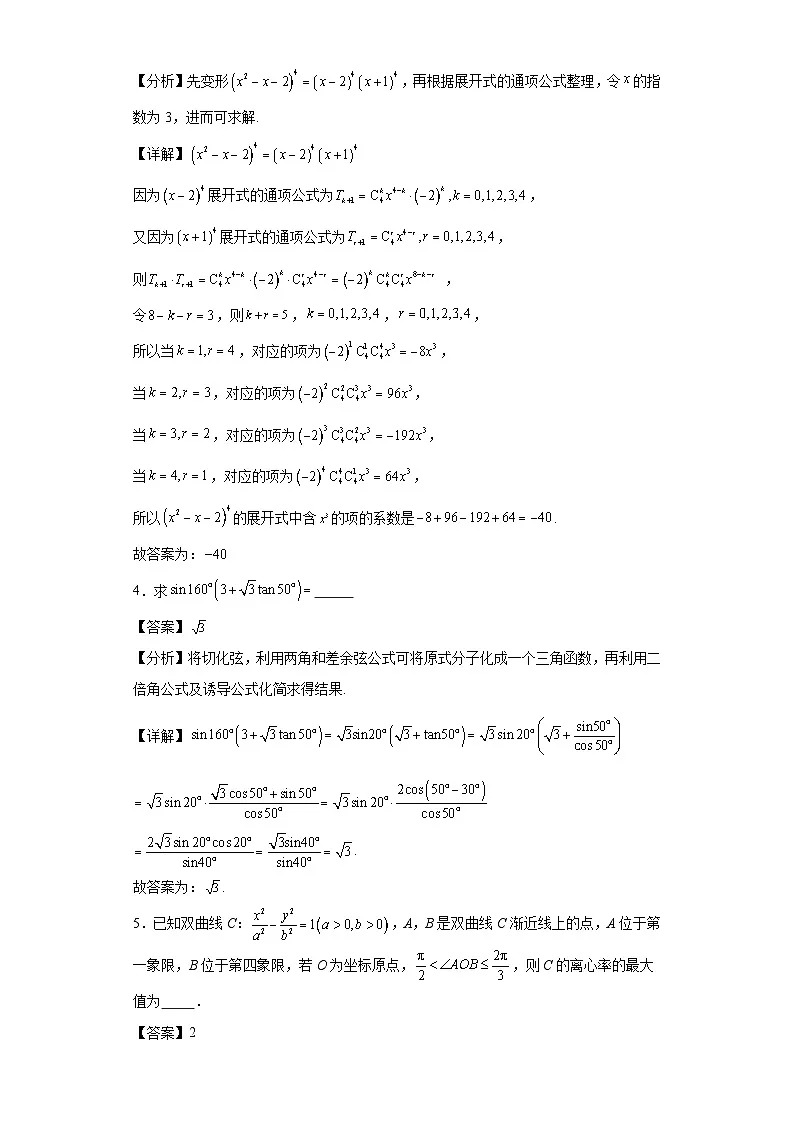 【分析】先变形(x² − x − 2)⁴ = (x − 2)⁴(x + 1)⁴,再根据展开式的通项公式整理,令x的指
数为 3,进而可求解.
【详解】(x² − x − 2)⁴ = (x − 2)⁴(x + 1)⁴
因为(x − 2)⁴展开式的通项公式为T_{k+1} = C_4^k x^{4−k} · (−2)^k, k = 0,1,2,3,4,
又因为(x + 1)⁴展开式的通项公式为T_{r+1} = C_4^r x^{4−r}, r = 0,1,2,3,4,
则T_{k+1} · T_{r+1} = C_4^k x^{4−k} · (−2)^k · C_4^r x^{4−r} = (−2)^k C_4^k C_4^r x^{8−k−r} ,
令8 − k − r = 3,则k + r = 5,k = 0,1,2,3,4,r = 0,1,2,3,4,
所以当k = 1, r = 4,对应的项为(−2)^1 C_4^1 C_4^4 x³ = −8x³,
当k = 2, r = 3,对应的项为(−2)^2 C_4^2 C_4^3 x³ = 96x³,
当k = 3, r = 2,对应的项为(−2)^3 C_4^3 C_4^2 x³ = −192x³,
当k = 4, r = 1,对应的项为(−2)^4 C_4^4 C_4^1 x³ = 64x³,
所以(x² − x − 2)⁴的展开式中含x³的项的系数是−8 + 96 − 192 + 64 = −40.
故答案为:−40
4.求sin160°(3 + √3 tan50°) = ______
【答案】√3
【分析】将切化弦,利用两角和差余弦公式可将原式分子化成一个三角函数,再利用二
倍角公式及诱导公式化简求得结果.
【详解】sin160°(3 + √3 tan50°) = √3sin20°(√3 + tan50°) = √3 sin20°(√3 + \frac{sin50°}{cos50°})
= √3 sin20° · \frac{√3 cos50° + sin50°}{cos50°} = √3 sin20° · \frac{2cos(50° − 30°)}{cos50°}
= \frac{2√3 sin20°cos20°}{sin40°} = \frac{√3sin40°}{sin40°} = √3.
故答案为:√3.
5.已知双曲线 C:\frac{x²}{a²} − \frac{y²}{b²} = 1(a > 0, b > 0),A,B 是双曲线 C 渐近线上的点,A 位于第
一象限,B 位于第四象限,若 O 为坐标原点,\frac{π}{2} < ∠AOB ≤ \frac{2π}{3},则 C 的离心率的最大
值为_____.
【答案】2